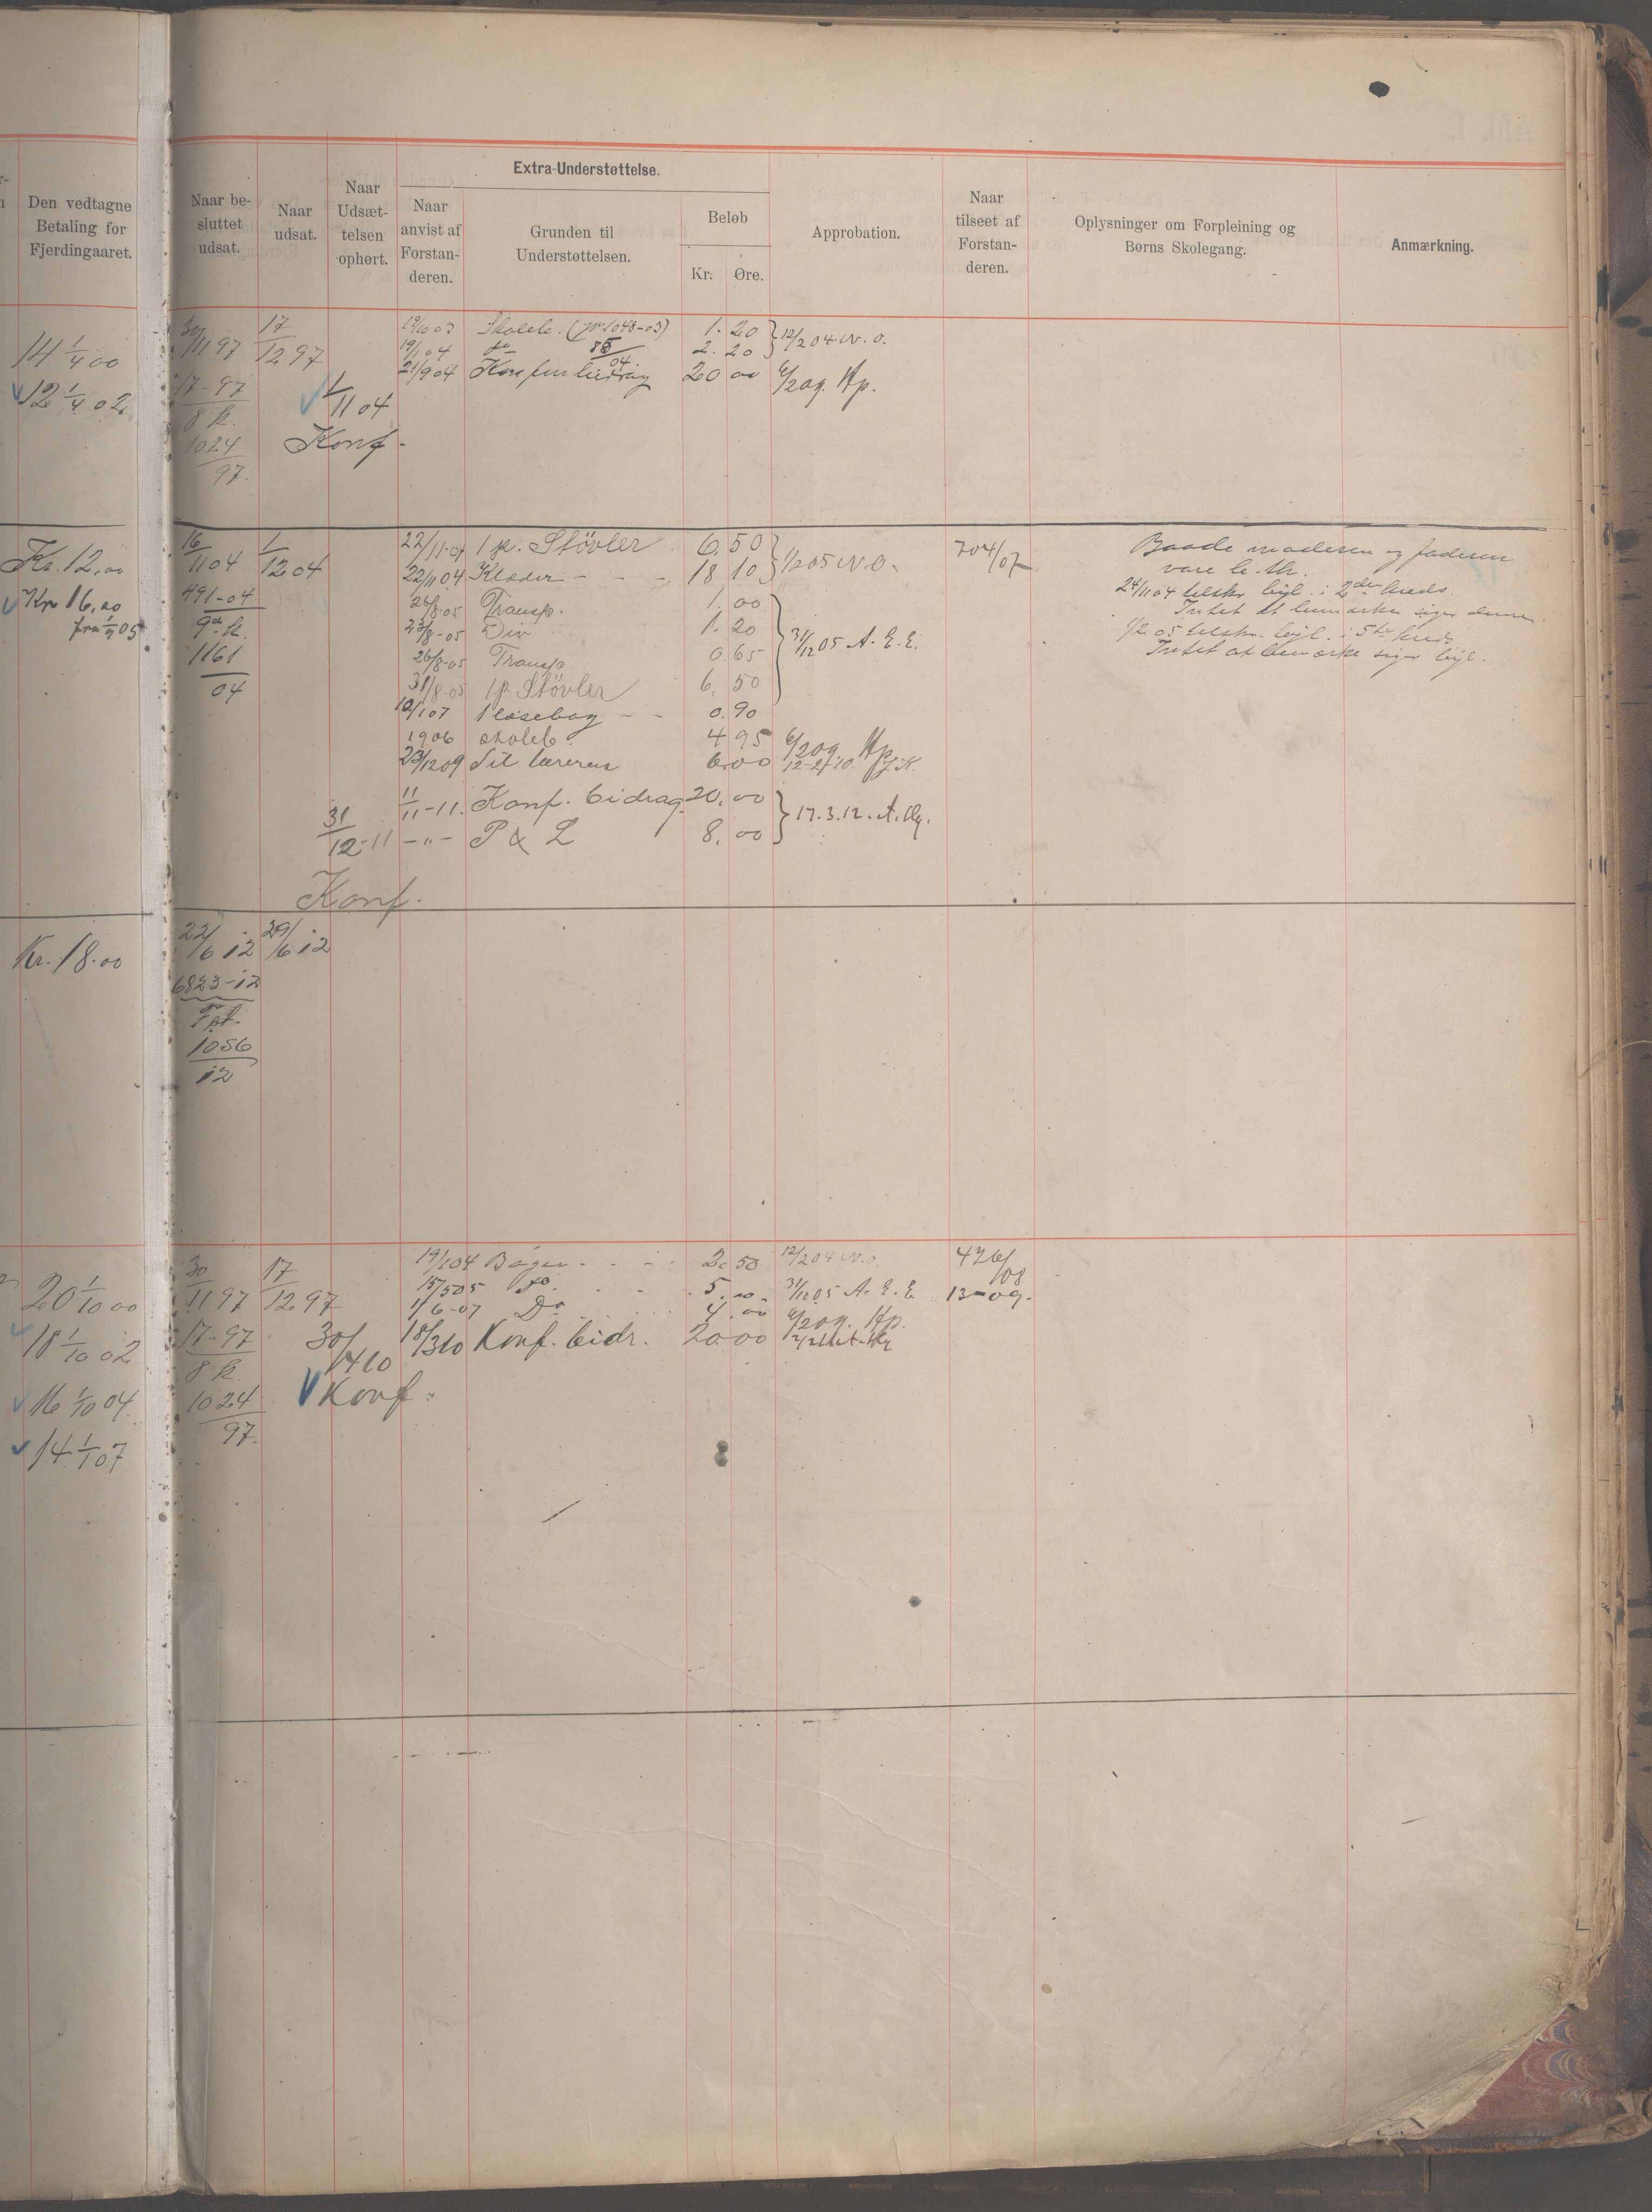 Den vedtagne
Betaling for
Fjerdingaaret.
Naar be-
sluttet
udsat.
Naar
udsat.
Naar
Udsæt-
telsen
ophørt.
Extra-Understøttelse.
Naar
anvist af
Forstan-
deren.
Grunden til
Understøttelsen.
Beløb
Kr. Øre.
Approbation.
Naar
tilseet af
Forstan-
deren.
Oplysninger om Forpleining og
Børns Skolegang.
Anmærkning.
14 1/4 00
12 1/4 02
30/11 97 17/12 97
17-97
8 k.
1024/97.
1/11 04
Konf.
19/10 03 Skoleb. (jr. 1048-03) 1. 20 12/2 04 N. O.
19/1 04 do 2. 20
21/9 04 20 00 6/2 09. Hp.
Kr. 12,00
Kr 16,00
fra 1/9 05
16/11 04 1/12 04
491-04
9de k.
1161/04
22/11-04 1 p. Støvler 6. 50 1/2 05 N. O.
22/11 04 Klæder - - - 18 10
26/8-05 Transp. 1. 00
23/8-05 Div 1. 20 31/12 05 A. E. E.
26/8-05 Transp 0. 65
31/8-05 1 p Støvler 6. 50
12/1 07 1 læsebog - - 0. 90
1906 skoleb. 4 95 6/2 09 Hp.
23/12 09 til læreren 6.00 12-2-10. J.K.
11/11-11. Konf. bidrag. 20. 00 17. 3. 12. A.
31/12-11 -"- P & L 8. 00
Konf.
704/07
Baade moderen og faderen
vare le. th.
24/11 04 tilskr. i 2den kreds.
Intet at bemærke siger denne.
1/2 05 tilskr. i 5te kreds
Intet at bemærke siger
Kr. 18.00
22/6 12 29/6 12
6823-12
1056/12
20 1/10 00
18 1/10 02
16 1/10 04.
14 1/1 07
30/11 97 17/12 97
17-97
8 k.
1024/97.
30/4 10
Konf.
19/1 04 Bøger - - - - 2. 50 12/2 04 N. O.
15/5 05 do . . . 5. 00 31/12 05 A. E. E.
1/6-07 Do . . . 4. 00 6/2 09. Hp.
18/3 10 Konf. bidr. 20.00
426/08
13-09.